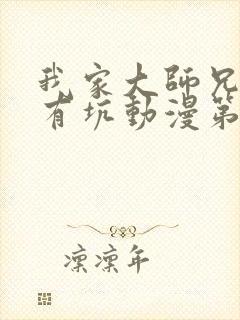 我家大師兄
有坑動漫第
凛凛年